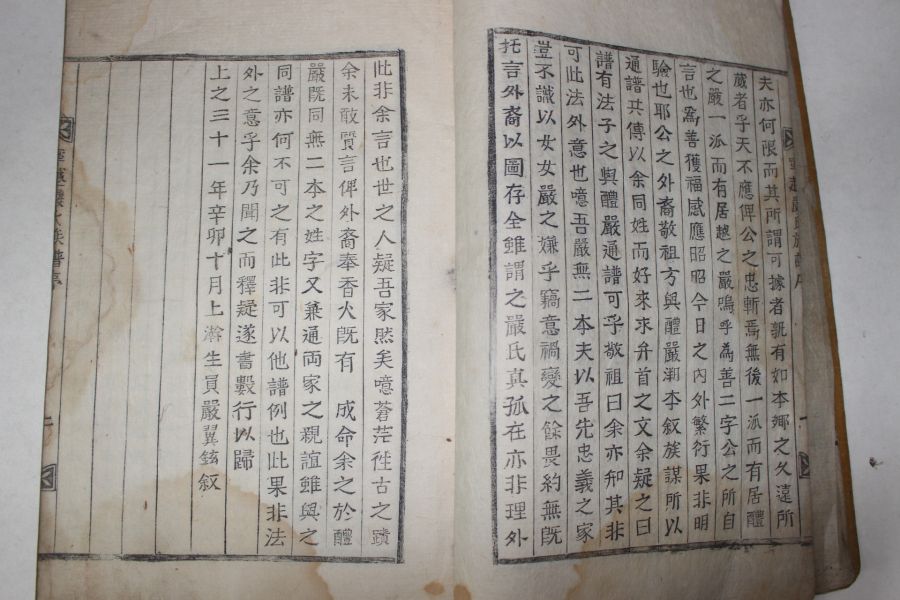 夫亦何限而其所謂可據者孰有如本鄕之久遠所
蕆者乎天不應俾公之忠斬焉無後一派而有居醴
之嚴一派而有居越之嚴嗚乎為善二字公之所自
言也爲善獲福感應昭昭今日之內外繁衍果非明
驗也耶公之外裔敬祖方與醴嚴溯本叙族謀所以
通譜共傳以余同姓而好來求弁首之文余疑之曰
譜有法子之與醴嚴通譜可乎敬祖曰余亦知其非
可此法外意也噫吾嚴無二本夫以吾先忠義之家
豈不識以女女嚴之嫌乎竊意禍變之餘畏約無旣
托言外裔以圖存全雖謂之嚴氏眞孤在亦非理外
此非余言也世之人疑吾家然矣噫蒼茫徃古之蹟
余未敢質言俾外裔奉香火旣有 成命余之於醴
嚴旣同無二本之姓字又兼通両家之親誼雖與之
同譜亦何不可之有此非可以他譜例也此果非法
外之意乎余乃聞之而釋疑遂書數行以歸
上之三十一年辛卯十月上澣生員嚴翼鉉叙